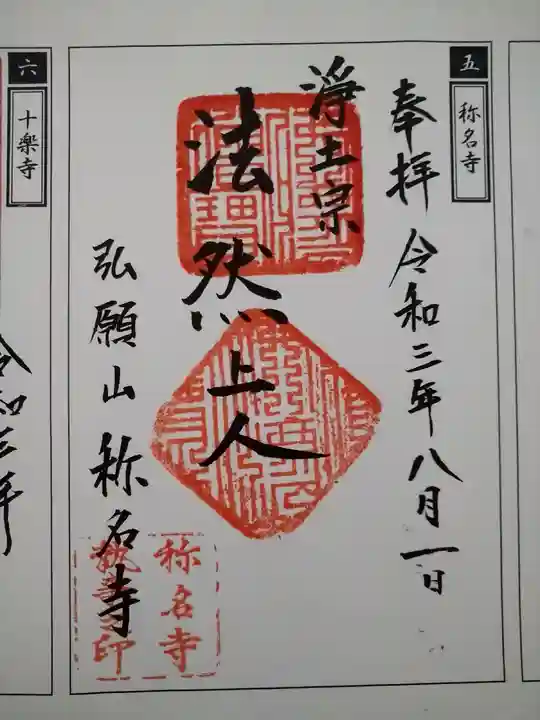 五
称名寺
奉拝 令和三年八月一日
浄土宗
法然上人
弘願山 称名寺
称名寺
執事之印
六
十楽寺
令和三年